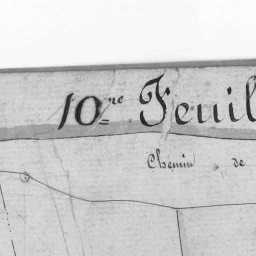 10.ne Feuil
Chemin de